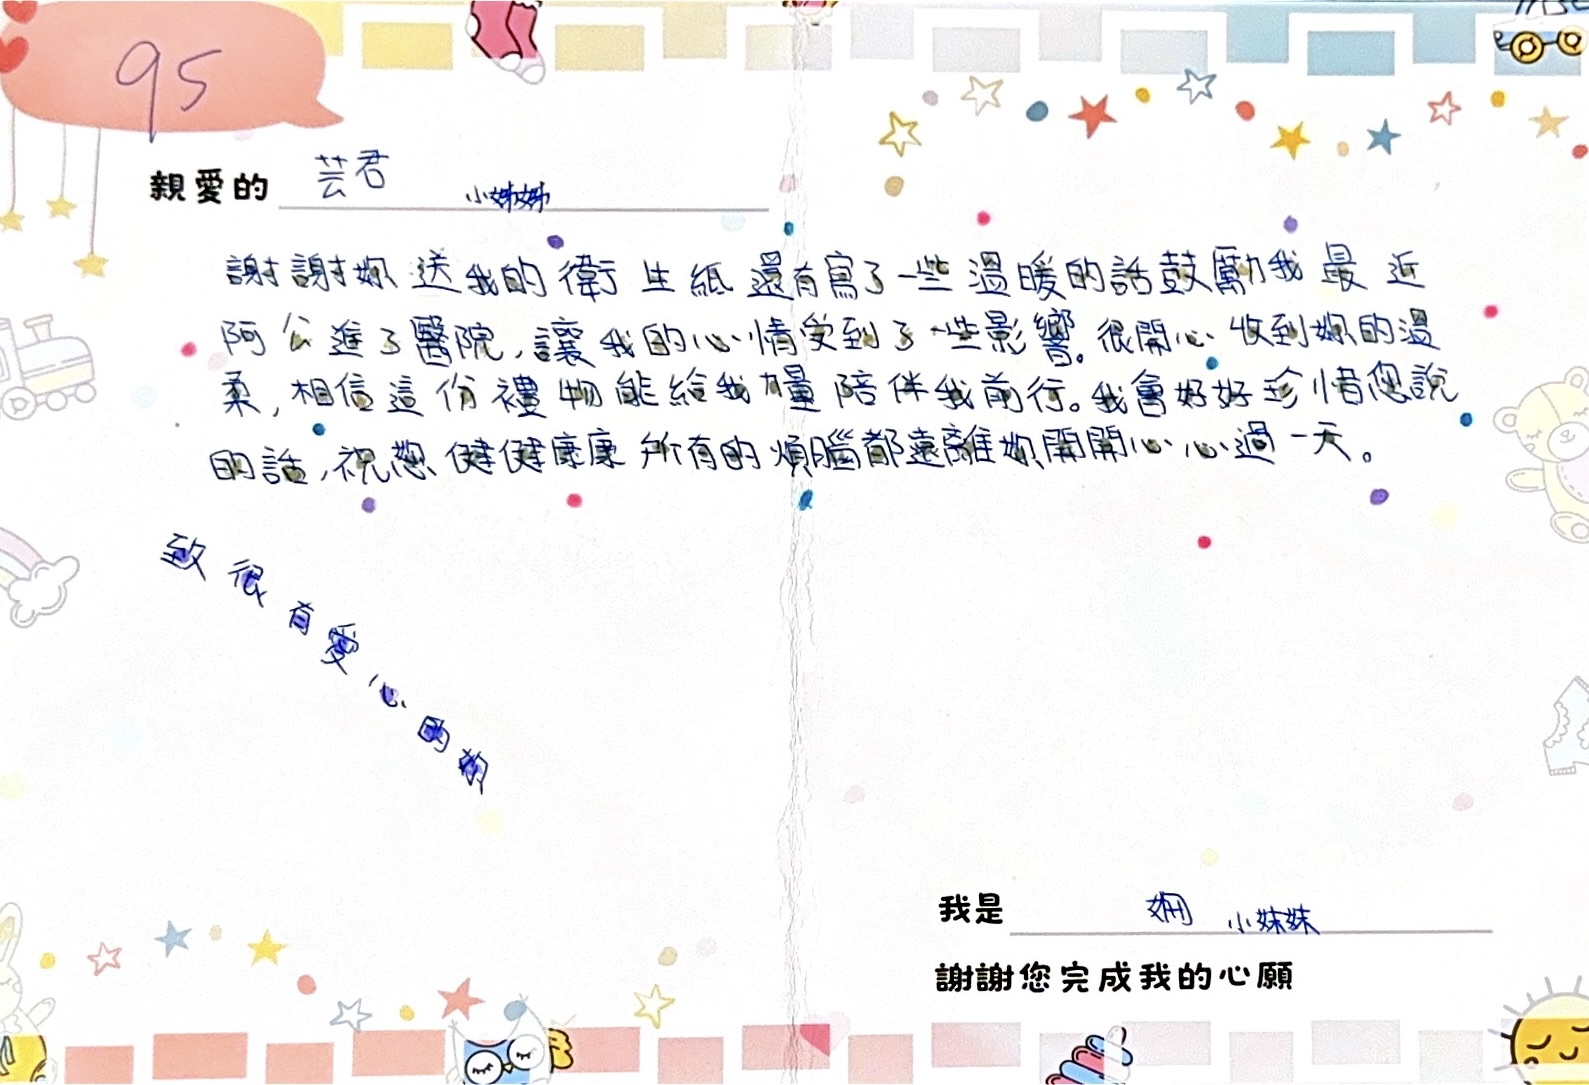 95
親愛的 芸君 小姊姊
謝謝妳送我的衛生紙還有寫了一些溫暖的話鼓勵我最近
阿公進了醫院,讓我的心情受到了一些影響。很開心收到妳的溫
柔,相信這份禮物能給我力量陪伴我前行。我會好好珍惜您說
的話,祝您健健康康所有的煩惱都遠離妳開開心心過一天。
致很有愛心的妳
我是 嫻 小妹妹
謝謝您完成我的心願